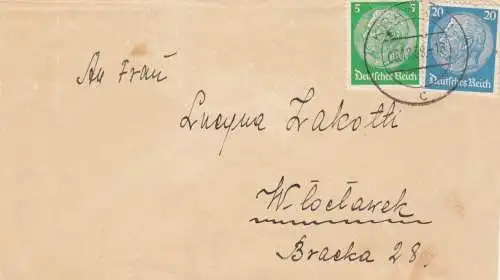 5 5 20 20
Deutsches Reich Deutsches Reich
c
An Frau
Lucyna Zakotti
Włocławek
Bracka 28.